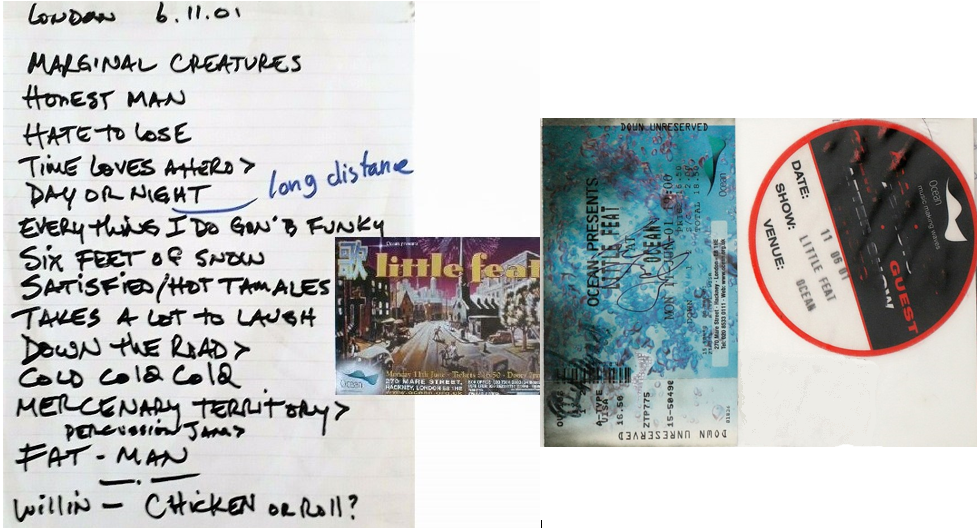 LONDON 6.11.01
MARGINAL CREATURES
HONEST MAN
HATE TO LOSE
TIME LOVES A HERO >
DAY OR NIGHT
long distance
EVERYTHING I DO GON' B FUNKY
SIX FEET OF SNOW
SATISFIED/HOT TAMALES
TAKES A LOT TO LAUGH
DOWN THE ROAD >
COLD COLD COLD
MERCENARY TERRITORY >
PERCUSSION JAM >
FAT - MAN
WILLIN — CHICKEN OR ROLL?
歌 little feat
Monday 11th June - Tickets £16.50 - Doors 7pm
270 MARE STREET,
HACKNEY, LONDON E8 1HE
www.ocean.org.uk
Ocean
DOWN UNRESERVED
OCEAN PRESENTS
LITTLE FEAT
AT OCEAN
TOTAL 18.50
270 Mare Street · Hackney · London E8 1HE
Tel: 020 8533 0111
Ocean
A-TYPE
VISA
16.50
ZTP775
DOWN UNRESERVED
Ocean
music making waves
GUEST
DATE: 11 06 01
SHOW: LITTLE FEAT
VENUE: OCEAN